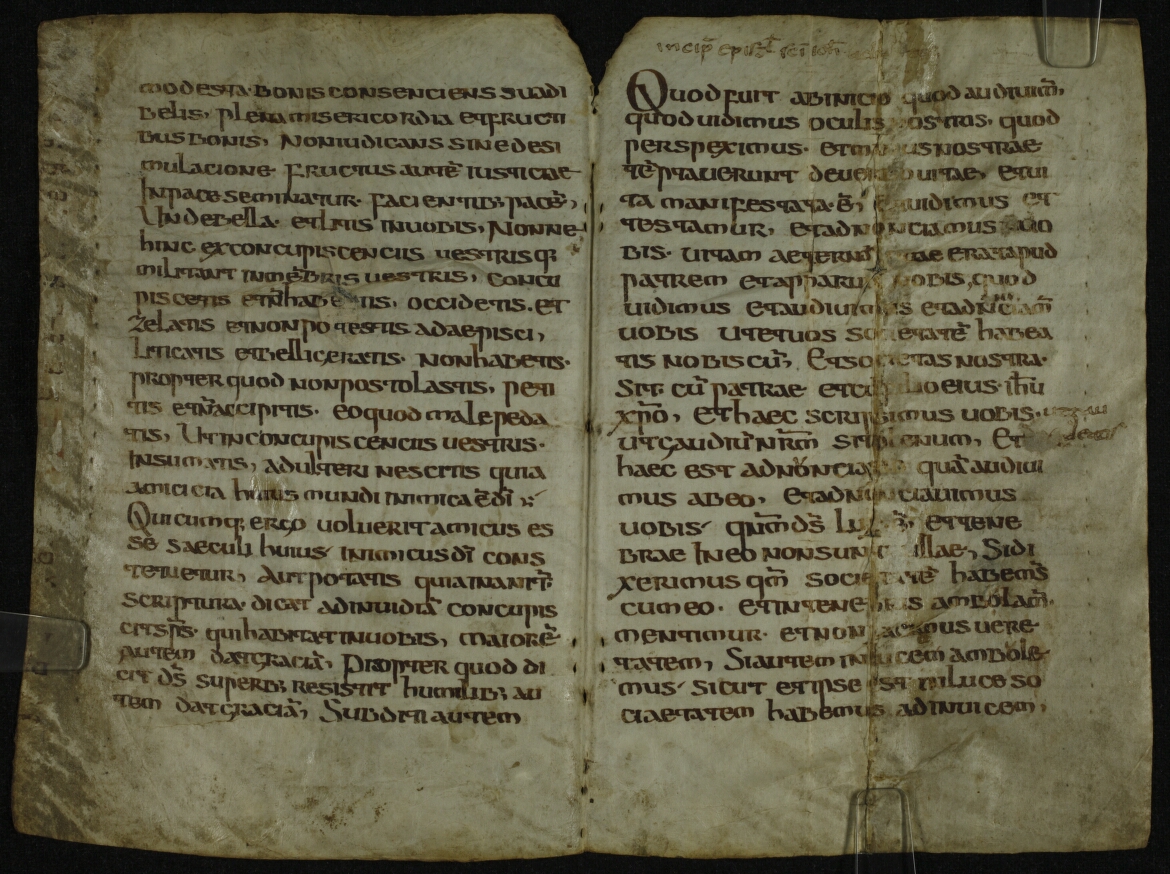 modesta. bonis consenciens suadi
belis, plena misericordia et fructi
bus bonis, Non iudicans sine desi
mulacione. fructus autē iusticiae
In pace seminatur. facientib; pacē,
Unde bella. et litis in uobis, Nonne
hinc ex concupiscenciis uestris q;
militant in mēbris uestris, concu
piscetis et n̄ habetis, occidetis. et
zelatis et non potestis adaepisci,
Liticatis et belligeratis. non habetis.
propter quod non postolastis, peti
tis et n̄ accipitis. eo quod male peda
tis, Ut in concupiscenciis uestris.
Insumatis, adulteri nescitis quia
amicicia huius mundi inimica ē dī
Quicumq; ergo uoluerit amicus es
se saeculi huius inimicus dī cons
tetuetur, Aut potatis quia inanit̄
scriptura. dicat ad inuidiā concupis
cit sp̄s. qui habitat in uobis, maiorē
autem dat graciā, Propter quod di
cit d̄s superb; resistit humilib; au
tem dat graciā, Subditi autem
incip̄ epist̄ sc̄i ioh̄
Quod fuit ab initio quod audiuim̄,
quod uidimus oculis nostris, quod
perspeximus. et manus nostrae
tēptauerunt de uerbo uitae, et ui
ta manifestata ē, et uidimus et
testamur, et adnonciamus uo
bis. uitam aeternā quae erat apud
patrem et apparuit nobis, quod
uidimus et audiuimus et adnōciam̄
uobis ut et uos societatē habea
tis nobiscū, Et societas nostra.
Sit cū patrae et cū filio eius. ih̄u
xp̄o, Et haec scripsimus uobis.
ut gaudiū nr̄m sit plenum, Et
haec est adnoncia quā audiui
mus ab eo, et adnunciauimus
uobis qnm̄ d̄s lux ē, et tene
brae In eo non sunt illae, Si di
xerimus qm̄ societatē habem̄s
cum eo. et in tenebris ambolam̄.
mentimur. et non facimus uere
tatem, Si autem in lucem ambole
mus sicut et ipse est in luce so
ciaetatem habemus ad inuicem,